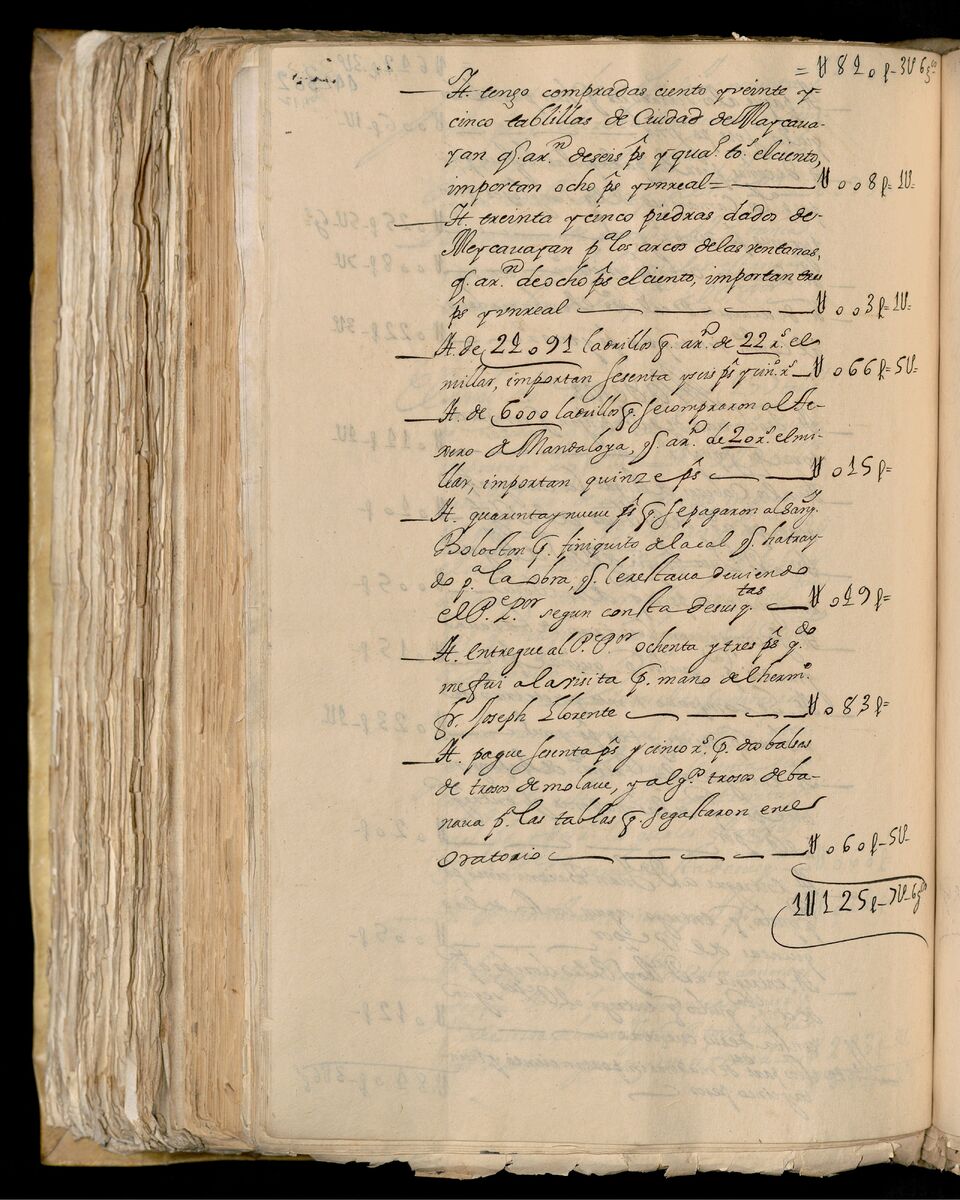 = U 840 p - 3U 6 gs
It. tengo compradas ciento y veinte y
cinco tablillas de Ciudad de Maycaua-
yan q.e a r.n de seis p.s y qua.o to.s el ciento,
importan ocho p.s y vn real = U 008 p = 1U =
It. treinta y cinco piedras dados de
Meycauayan p.a los arcos de las ventanas,
q.e a r.n de ocho p.s el ciento, importan tres
p.s y vn real U 003 p = 1U =
It. de 24091 ladrillo q. a r.n de 22 r.s el
millar, importan sesenta y seis p.s y sin.o r.s U 066 p = 5U =
It. de 6000 ladrillo q. se compraron al te-
rero de Mandaloya, q. a r.n de 20 r.s el mi-
llar, importan quinze p.s U 015 p =
It. quarenta y nueue p.s q. se pagaron al Sarg.
Bolocton p. finiquito de la cal q. ha tray-
do p.a la obra, q. le restaua deuiendo
el P.e P.or segun consta de sus q.tas U 049 p =
It. entregue al P.e P.or ochenta y tres p.s q.do
me fui a la visita p. mano del herm.o
fr. Joseph Llorente U 083 p =
It. pague sesenta p.s y cinco r.s p. dos balsas
de trosos de molaue, y alg.s trosos de ba-
naua p.a las tablas q. se gastaron en el
oratorio U 060 p - 5U
1U125 p - 7U 6 gs